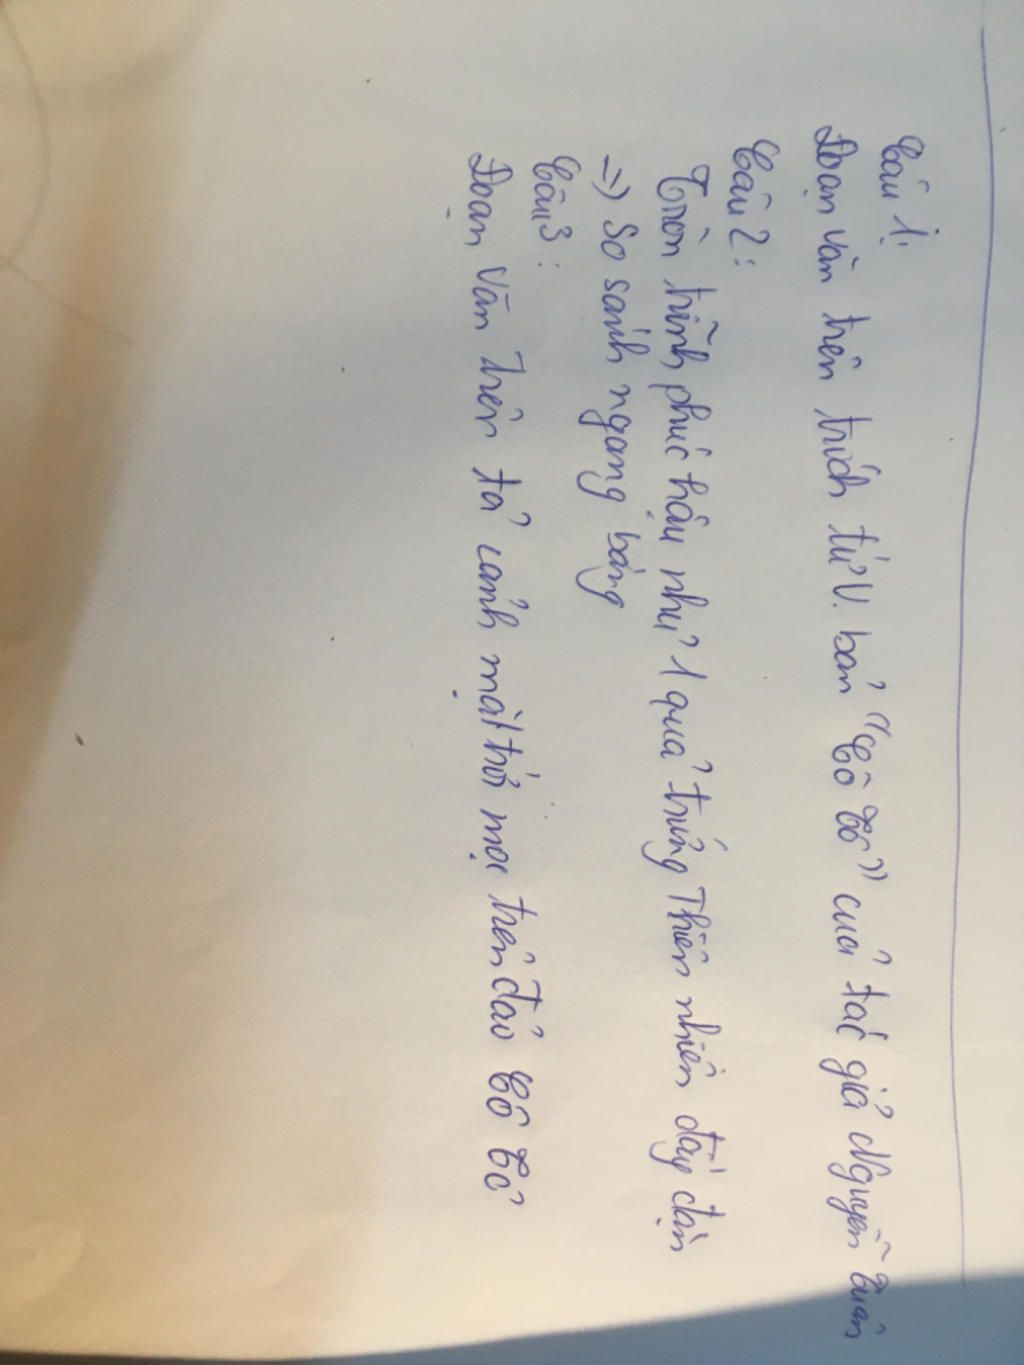 Câu 1:
Đoạn văn trên trích từ V. bản "Cô Tô" của tác giả Nguyễn Tuân
Câu 2:
Tròn trĩnh phúc hậu như 1 quả trứng Thiên nhiên đầy đặn
=> So sánh ngang bằng
Câu 3:
Đoạn văn trên tả cảnh mặt trời mọc trên đảo Cô Tô